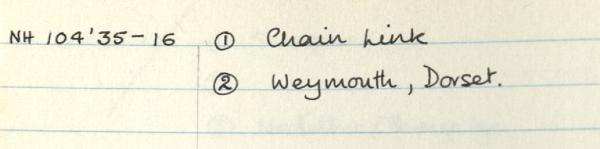 NH 104'35-16 ① Chain Link
② Weymouth, Dorset.